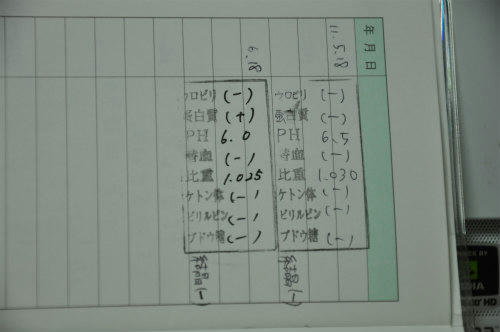 年月日
11.5.18
ウロビリ (-)
蛋白質 (-)
PH 6.5
潜血 (-)
比重 1.030
ケトン体 (-)
ビリルビン (-)
ブドウ糖 (-)
結晶(-)
6.18
ウロビリ (-)
蛋白質 (+)
PH 6.0
潜血 (-)
比重 1.025
ケトン体 (-)
ビリルビン (-)
ブドウ糖 (-)
結晶(-)